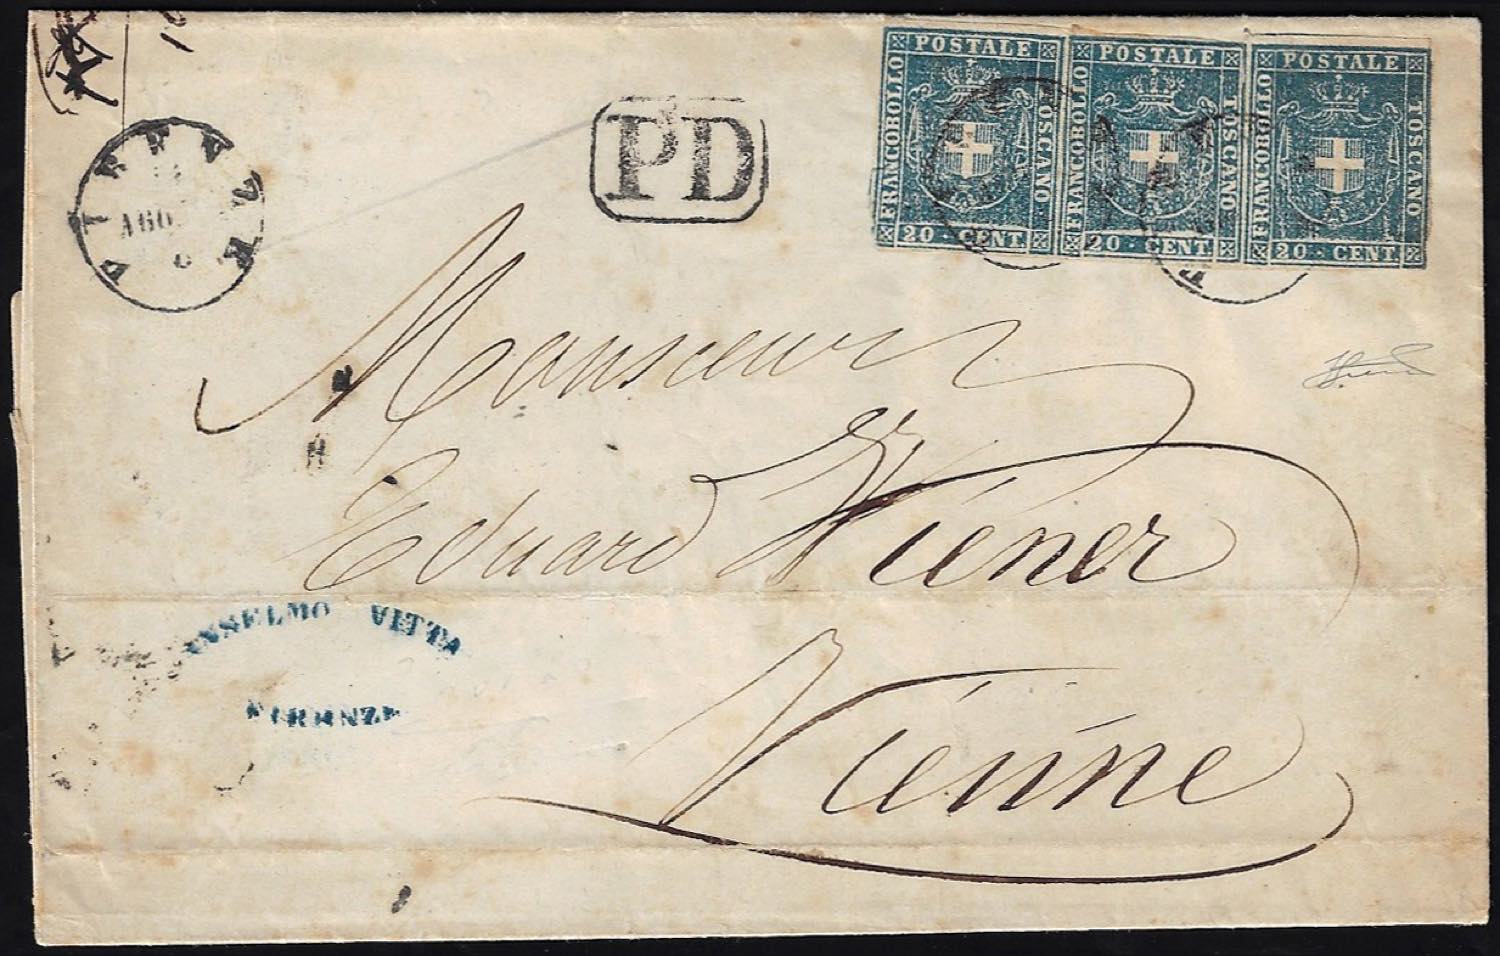 FIRENZE
AGO
PD
POSTALE
FRANCOBOLLO
TOSCANO
20 · CENT.
POSTALE
FRANCOBOLLO
TOSCANO
20 · CENT.
POSTALE
FRANCOBOLLO
TOSCANO
20 · CENT.
Monsieur
Eduard Wiener
ANSELMO VITTA
FIRENZE
Vienne